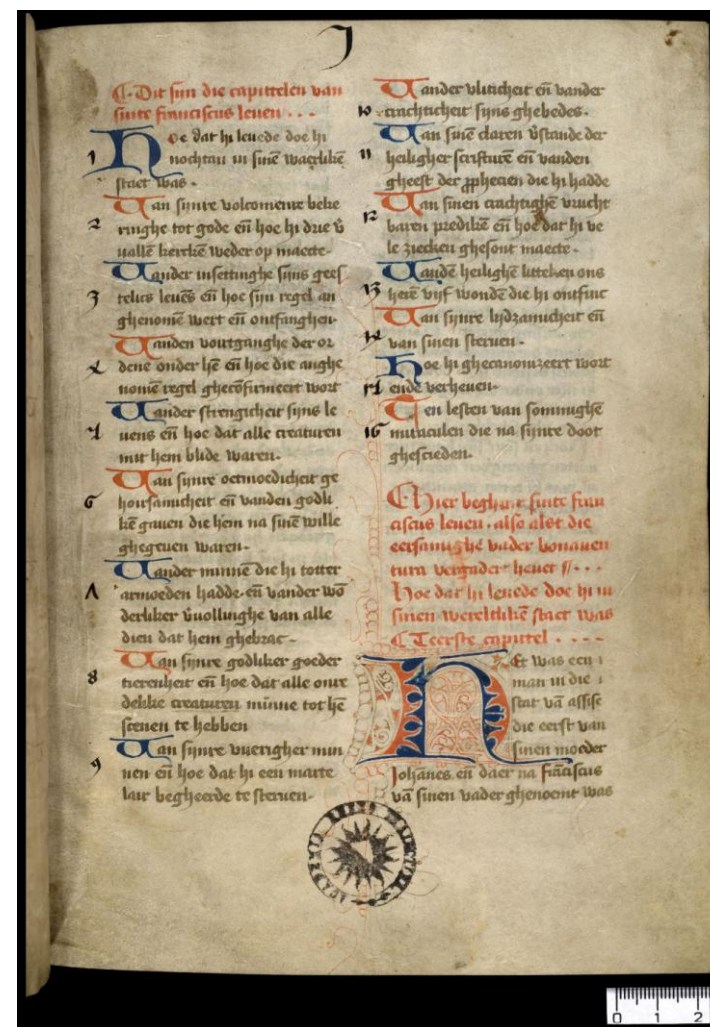 J
Dit siin die capittelen van
sinte franciscus leuen . . .
Hoe dat hi leuede doe hi
1 nochtan in sinē waerlikē
staet was -
Van siinre volcomenre beke
2 ringhe tot gode eñ hoe hi drie v̄
uallē kercken weder op maecte-
Vander insettinghe siins gees
3 telics leuēs eñ hoe siin regel an
ghenomē wert eñ ontfanghen-
Vanden voortganghe der or
dene onder hē eñ hoe die anghe
nomē regel ghecōfirmeert wort
Vander strengicheit siins le
uens eñ hoe dat alle creaturen
mit hem blide waren-
Van siinre oetmoedicheit ge
6 hoirsamicheit eñ vanden godli
kē gauen die hem na sinē wille
ghegeuen waren-
Vander minnē die hi totter
Λ armoeden hadde eñ vander wō
derliker v̄uollinghe van alle
dien dat hem ghebrac -
Van siinre godliker goeder
8 tierenheit eñ hoe dat alle onre
delike creaturen minne tot hē
scenen te hebben
Van siinre vuerigher min
9 nen eñ hoe dat hi een marte
laer begheerde te steruen-
Vander vliticheit eñ vander
10 crachticheit siins ghebedes-
Van sinē claren v̄stande der
11 heiligher scrifturē eñ vanden
gheest der ꝓphecien die hi hadde
Van sinen crachtighē vrucht
12 baren predikē eñ hoe dat hi ve
le ziecken ghesont maecte-
Vandē heilighē litteken ons
13 herē vijf wondē die hi ontfinc
Van siinre lijdzamicheit eñ
van sinen steruen-
Hoe hi ghecanonizeert wort
ende verheuen-
Ten lesten van sommighē
16 miraculen die na siinre doot
ghescieden-
Hier beghint sinte fran
ciscus leuen. also alst die
eersamighe vader bonauen
tura vergadert heuet . . .
Hoe dat hi leuede doe hi in
sinen wereltlikē staet was
Teerste capittel . . . .
HEt was een
man in die
stat vā assise
die eerst van
sinen moeder
Johānes eñ daer na frāciscus
vā sinen vader ghenoemt was